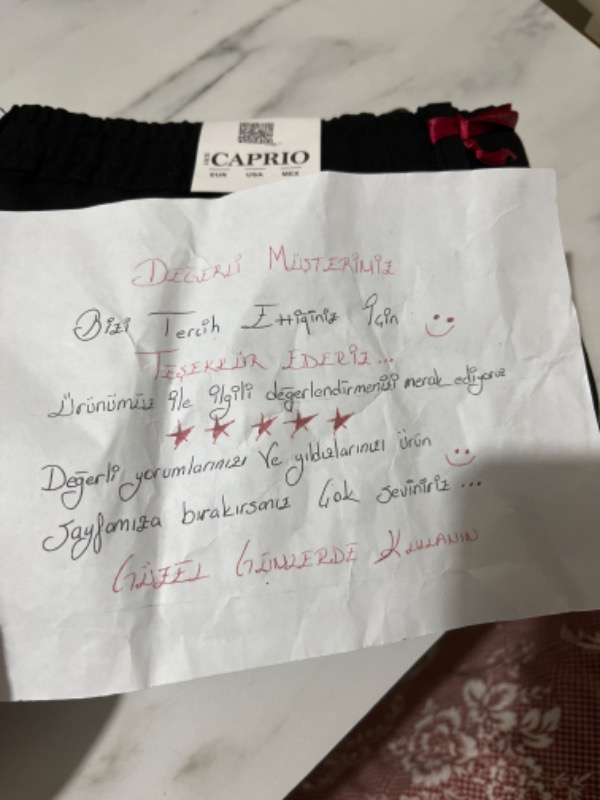 CAPRIO
EUR USA MEX
DEĞERLİ MÜŞTERİMİZ
Bizi Tercih Ettiğiniz İçin
TEŞEKKÜR EDERİZ...
Ürünümüz ile ilgili değerlendirmenizi merak ediyoruz
Değerli yorumlarınızı ve yıldızlarınızı ürün
sayfamıza bırakırsanız Çok seviniriz...
GÜZEL GÜNLERDE KULLANIN